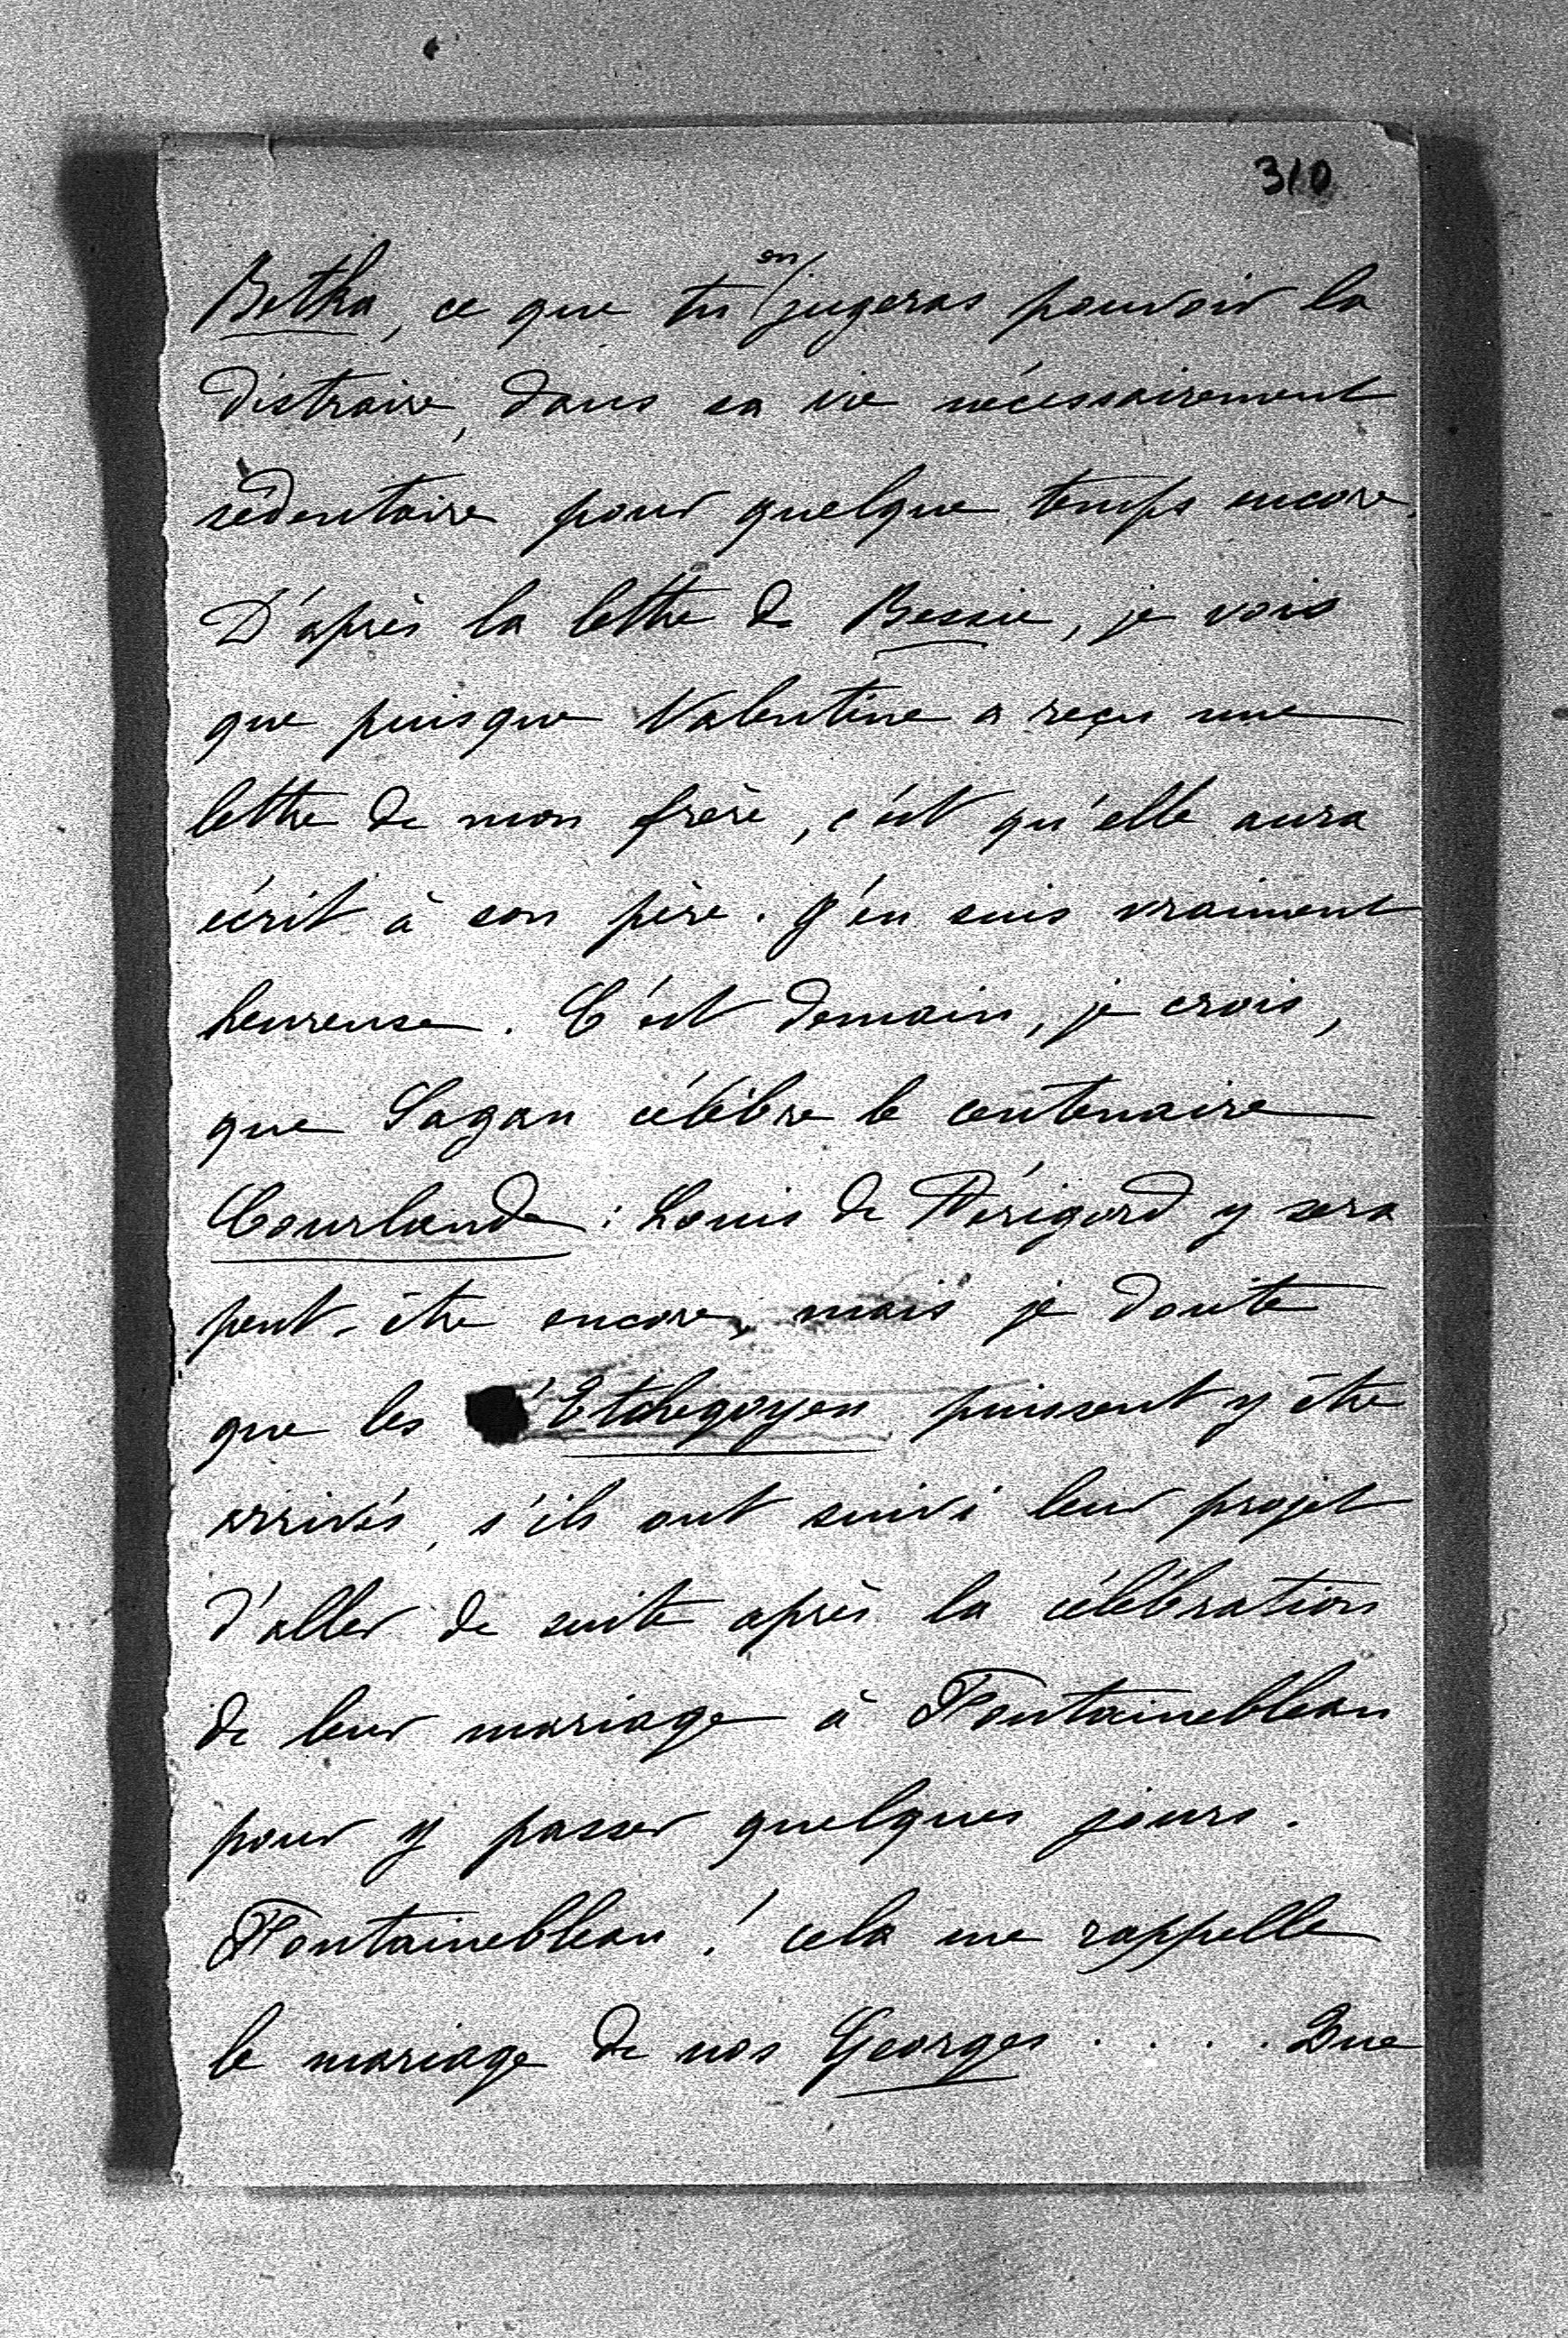 310
Betka, ce que tu en jugeras pouvoir la
distraire, dans sa vie nécessairement
sédentaire pour quelque temps encore.
D'après la lettre de Bessie, je vois
que puisque Valentine a reçu une
lettre de mon frère, c'est qu'elle aura
écrit à son père. J'en suis vraiment
heureuse. C'est demain, je crois,
que Sagan célèbre le centenaire
Courlande : Louis de Périgord y sera
peut-être encore, mais je doute
que les Etchegoyen puissent y être
arrivés, s'ils ont suivi leur projet
d'aller de suite après la célébration
de leur mariage à Fontainebleau
pour y passer quelques jours.
Fontainebleau ! cela me rappelle
le mariage de nos Georges . . . . Que